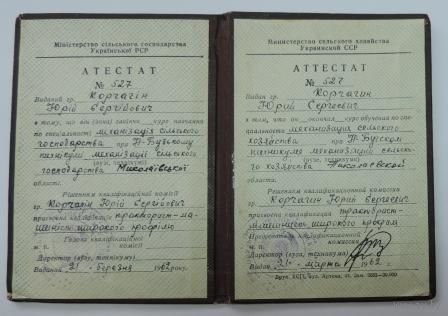 Міністерство сільського господарства
Української РСР
АТЕСТАТ
№ 527
Виданий гр. Корчагін
Юрій Сергійович
в тому, що він (вона) закінчив курс навчання
по спеціальності механізація сільського
господарства при П-Бузькому
технікумі механізації сільського
(вузи, технікуми)
господарства Миколаївської
області.
Рішенням кваліфікаційної комісії
гр. Корчагін Юрій Сергійович
присвоєна кваліфікація тракторист-ма-
шиніст широкого профілю
Голова кваліфікаційної
комісії
м. п.
Директор (вузу, технікуму)
Виданий 21 березня 1962 року.
Министерство сельского хозяйства
Украинской ССР
АТТЕСТАТ
№ 527
Выдан гр. Корчагин
Юрий Сергеевич
в том, что он окончил курс обучения по спе-
циальности механизация сельского
хозяйства при П-Бугском
техникуме механизации сельско-
(вузе, техникуме)
го хозяйства Николаевской
области.
Решением квалификационной комиссии
гр. Корчагин Юрий Сергеевич
присвоена квалификация тракторист-
машинист широкого профиля
Председатель квалификационной
комиссии
м. п.
Директор (вуза, техникума)
Выдан 21 марта 1962 г.